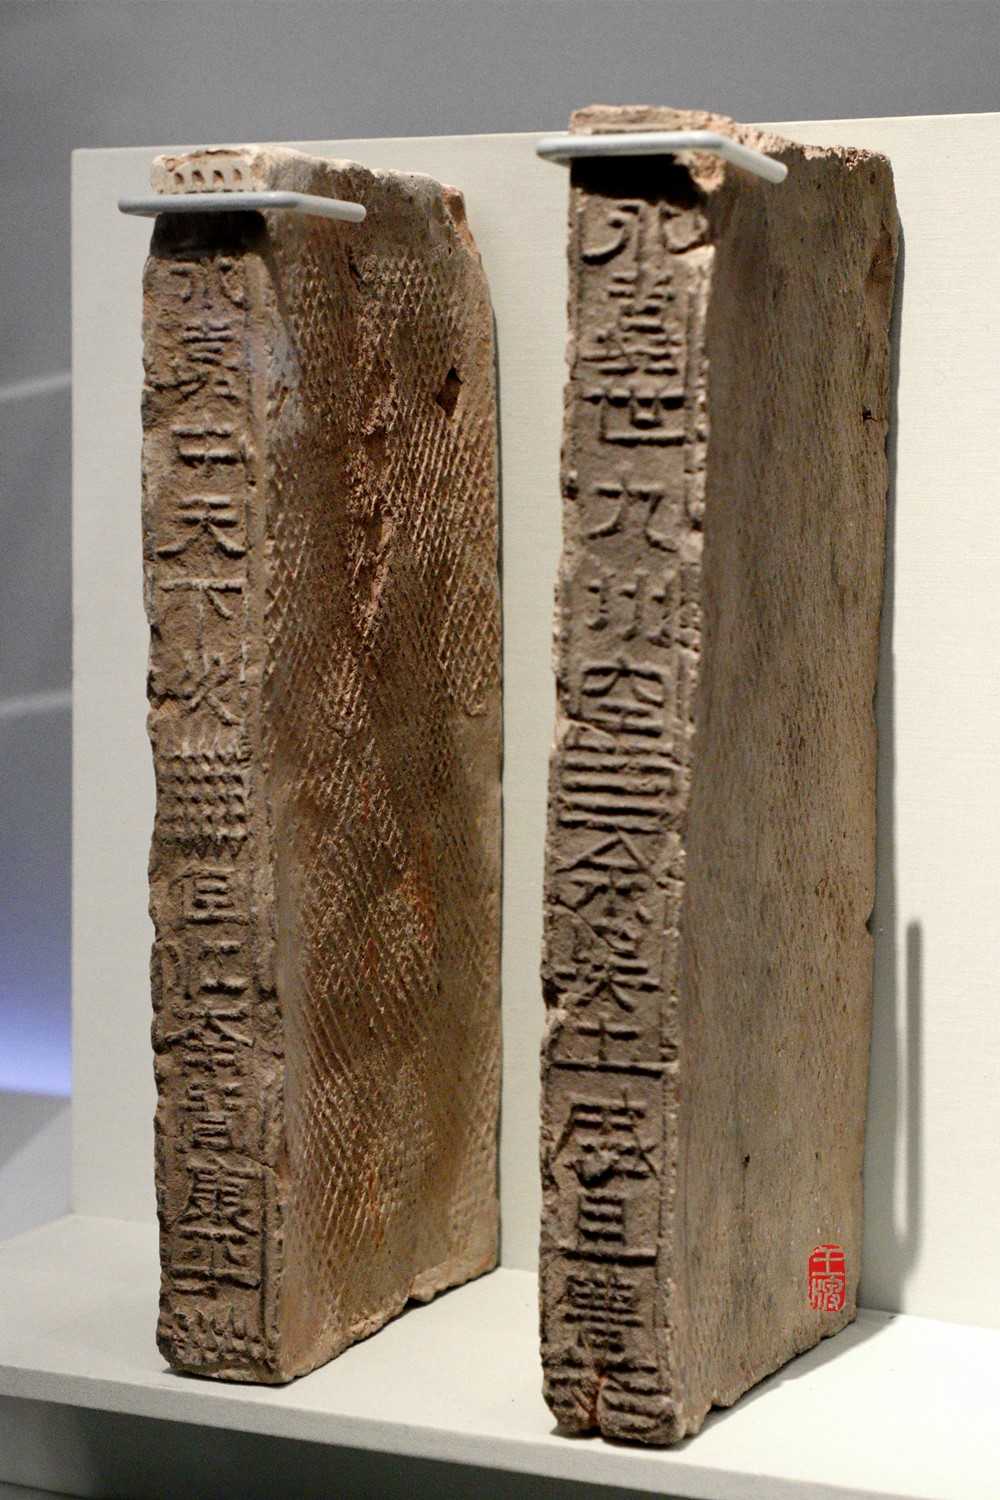 永嘉中天下災但江南皆康平
永嘉世九州空余吳土盛且豐